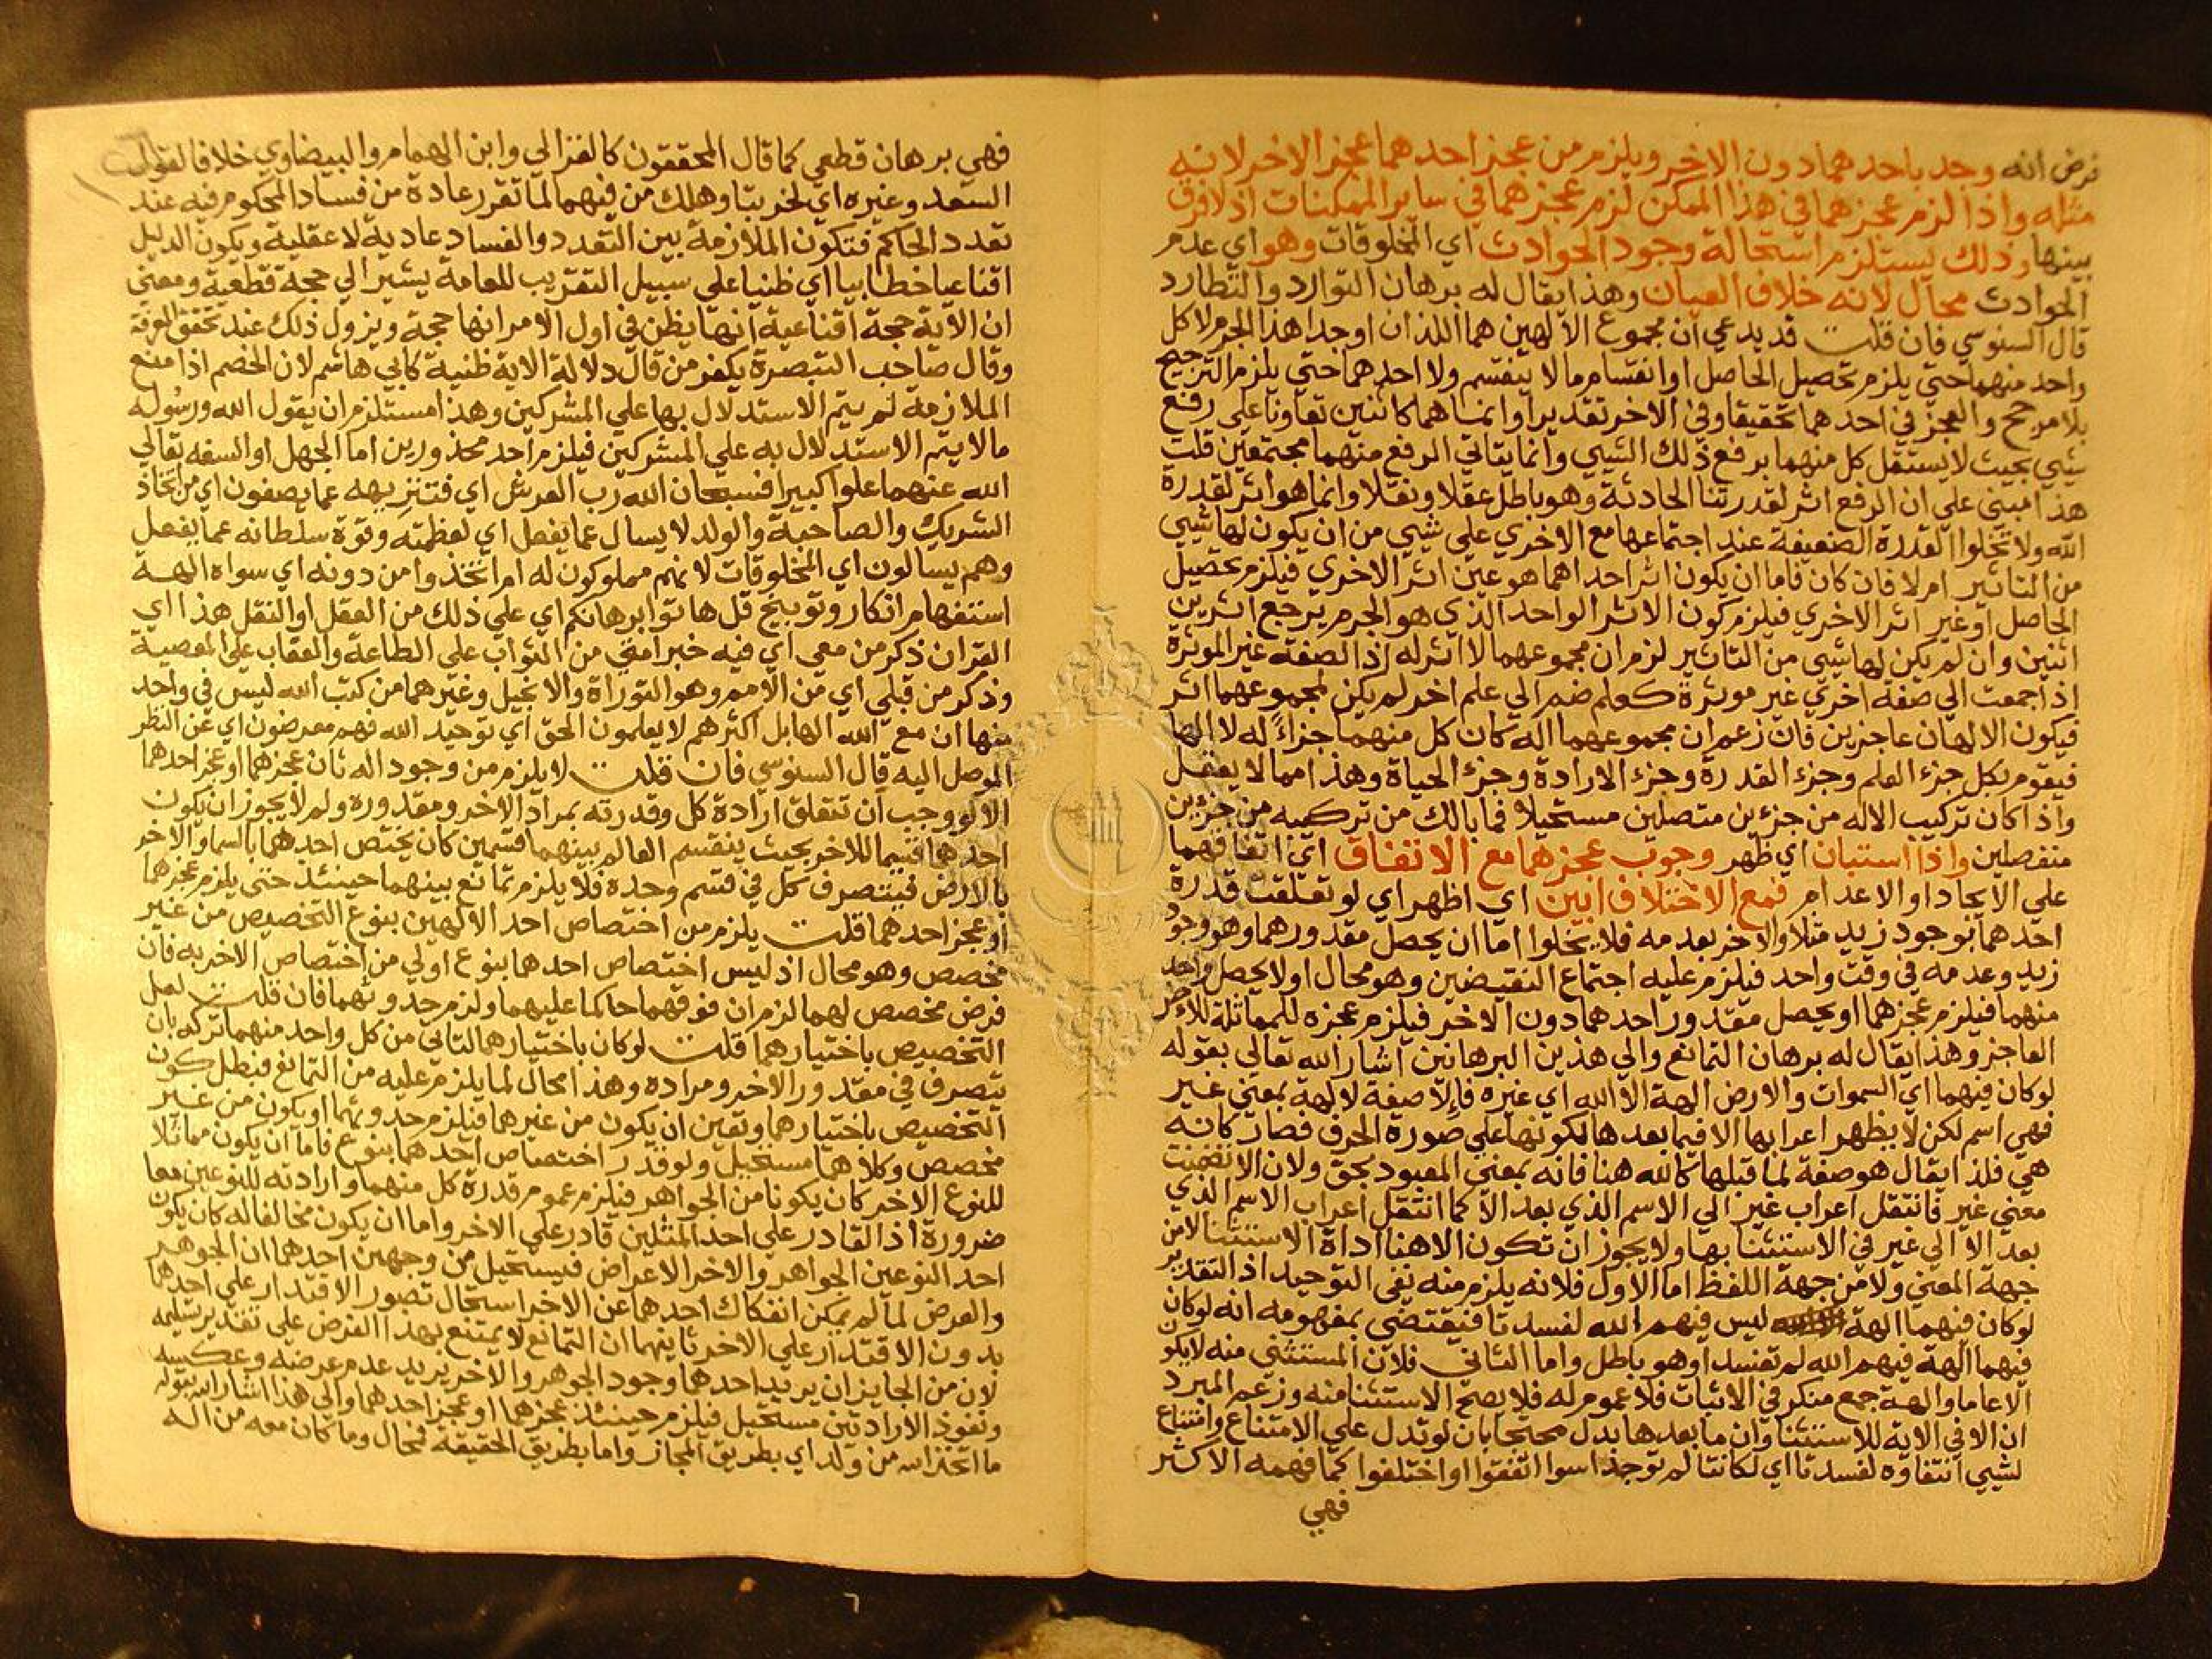 فرض انه وجد باحدهما دون الاخر ويلزم من عجز احدهما عجز الاخر لانه
مثله واذا لزم عجزهما في هذا الممكن لزم عجزهما في ساير الممكنات اذ لا فرق
بينها وذلك يستلزم استحالة وجود الحوادث اي المخلوقات وهو اي عدم
الحوادث محال لانه خلاف العيان وهذا يقال له برهان التوارد والتطارد
قال السنوسي فان قلت قد يدعي ان مجموع الالهين هما اللذان اوجدا هذا الجرم لا كل
واحد منهما حتي يلزم تحصيل الحاصل او انقسام ما لا ينقسم ولا احدهما حتي يلزم الترجيح
بلا مرجح والعجز في احدهما تحقيقا وفي الاخر تقديرا وانما هما كاثنين تعاونا علي رفع
شيي بحيث لا يستقل كل منهما برفع ذلك الشيي وانما يتاتي الرفع منهما مجتمعين قلت
هذا مبني علي ان الرفع اثر لقدرتنا الحادثة وهو باطل عقلا ونقلا وانما هو اثر لقدرة
الله ولا تخلوا القدرة الضعيفة عند اجتماعها مع الاخري علي شيي من ان يكون لها شيي
من التاثير ام لا فان كان فاما ان يكون اثر احداهما هو عين اثر الاخري فيلزم تحصيل
الحاصل او غير اثر الاخري فيلزم كون الاثر الواحد الذي هو الجرم يرجع اثرين
اثنين وان لم يكن لها شيي من التاثير لزم ان مجموعهما لا اثر له اذ الصفة غير الموثرة
اذا جمعت الي صفة اخري غير موثرة كعلم ضم الي علم اخر لم يكن لمجموعهما اثر
فيكون الالهان عاجزين فان زعم ان مجموعهما اله كان كل منهما جزاً له لا الها
فيقوم بكل جزء العلم وجزء القدرة وجزء الارادة وجزء الحياة وهذا مما لا يعقل
واذا كان تركيب الاله من جزءين متصلين مستحيلا فما بالك من تركيبه من جزءين
منفصلين واذا استبان اي ظهر وجوب عجزهما مع الاتفاق اي اتفاقهما
علي الايجاد او الاعدام فمع الاختلاف ابين اي اظهر اي لو تعلقت قدرة
احدهما بوجود زيد مثلا والاخر بعدمه فلا يخلوا اما ان يحصل مقدورهما وهو وجود
زيد وعدمه في وقت واحد فيلزم عليه اجتماع النقيضين وهو محال او لا يحصل واحد
منهما فيلزم عجزهما او يحصل مقدور احدهما دون الاخر فيلزم عجزه للمماثلة للاخر
العاجز وهذا يقال له برهان التمانع والي هذين البرهانين اشار الله تعالي بقوله
لو كان فيهما اي السموات والارض الهة الا الله اي غيره فإلا صفة لالهة بمعني غير
فهي اسم لكن لا يظهر اعرابها الا فيما بعدها لكونها علي صورة الحرف فصار كانه
هي فلذا يقال هو صفة لما قبلها كالله هنا فانه بمعني المعبود بحق ولان الا تضمنت
معني غير فانتقل اعراب غير الي الاسم الذي بعد الا كما انتقل اعراب الاسم الذي
بعد الا الي غير في الاستثنا بها ولا يجوز ان تكون الا هنا اداة الاستثنا لا من
جهة المعني ولا من جهة اللفظ اما الاول فلانه يلزم منه نفي التوحيد اذ التقدير
لو كان فيهما الهة ليس فيهم الله لفسدتا فيقتضي بمفهومه انه لو كان
فيهما الهة فيهم الله لم تفسدا وهو باطل واما الثاني فلان المستثني منه لا يكون
الا عاما والهة جمع منكر في الاثبات فلا عموم له فلا يصح الاستثنا منه وزعم المبرد
ان الا في الاية للاستثنا وان ما بعدها بدل محتجا بان لو تدل علي الامتناع وامتناع
لشيي انتفاوه لفسدتا اي لكانتا لم توجدا سوا اتفقوا او اختلفوا كما فهمه الاكثر
فهي
فهي برهان قطعي كما قال المحققون كالغزالي وابن الهمام والبيضاوي خلافا لقول
السعد وغيره اي لخربتا وهلك من فيهما لما تقرر عادة من فساد المحكوم فيه عند
تعدد الحاكم فتكون الملازمة بين التعدد والفساد عادية لا عقلية ويكون الدليل
اقناعيا خطابيا اي ظنيا علي سبيل التقريب للعامة يشير الي حجة قطعية ومعني
ان الاية حجة اقناعية انها يظن في اول الامر انها حجة ويزول ذلك عند تحقق المعرفة
وقال صاحب التبصرة يكفر من قال دلالة الاية ظنية كابي هاشم لان الخصم اذا منع
الملازمة لم يتم الاستدلال بها علي المشركين وهذا مستلزم ان يقول الله ورسوله
ما لا يتم الاستدلال به علي المشركين فيلزم احد محذورين اما الجهل او السفه تعالي
الله عنهما علوا كبيرا فسبحان الله رب العرش اي فتنزيهه عما يصفون اي من اتخاذ
الشريك والصاحبة والولد لا يسال عما يفعل اي لعظمته وقوة سلطانه عما يفعل
وهم يسالون اي المخلوقات لانهم مملوكون له ام اتخذوا من دونه اي سواه الهة
استفهام انكار وتوبيخ قل هاتوا برهانكم اي علي ذلك من العقل او النقل هذا اي
القران ذكر من معي اي فيه خبر امتي من الثواب علي الطاعة والعقاب علي المعصية
وذكر من قبلي اي من الامم وهو التوراة والانجيل وغيرهما من كتب الله ليس في واحد
منها ان مع الله الها بل اكثرهم لا يعلمون الحق اي توحيد الله فهم معرضون اي عن النظر
الموصل اليه قال السنوسي فان قلت لا يلزم من وجود اله ثان عجزهما او عجز احدهما
الا لو وجب ان تتعلق ارادة كل وقدرته بمراد الاخر ومقدوره ولم لا يجوز ان يكون
احدهما قسيما للاخر بحيث ينقسم العالم بينهما قسمين كان يختص احدهما بالسما والاخر
بالارض فيتصرف كل في قسم وحده فلا يلزم تمانع بينهما حينئذ حتي يلزم عجزهما
او عجز احدهما قلت يلزم من اختصاص احد الالهين بنوع التخصيص من غير
مخصص وهو محال اذ ليس اختصاص احدهما بنوع اولي من اختصاص الاخر به فان
فرض مخصص لهما لزم ان فوقهما حاكما عليهما ولزم حدوثهما فان قلت لعل
التخصيص باختيارهما قلت لو كان باختيارهما لتاتي من كل واحد منهما تركه بان
يتصرف في مقدور الاخر ومراده وهذا محال لما يلزم عليه من التمانع فبطل كون
التخصيص باختيارهما وتعين ان يكون من غيرهما فيلزم حدوثهما او يكون من غير
مخصص وكلاهما مستحيل ولو قدر اختصاص احدهما بنوع فاما ان يكون مماثلا
للنوع الاخر كان يكونا من الجواهر فيلزم عموم قدرة كل منهما وارادته للنوعين معا
ضرورة اذ القادر علي احد المثلين قادر علي الاخر واما ان يكون مخالفا له كان يكون
احد النوعين الجواهر والاخر الاعراض فيستحيل من وجهين احدهما ان الجوهر
والعرض لما لم يمكن انفكاك احدهما عن الاخر استحال تصور الاقتدار علي احدهما
بدون الاقتدار علي الاخر ثانيهما ان التمانع لا يمتنع بهذا الفرض علي تقدير تسليمه
لان من الجايز ان يريد احدهما وجود الجوهر والاخر يريد عدم عرضه وعكسه
ونفوذ الارادتين مستحيل فيلزم حينئذ عجزهما او عجز احدهما والي هذا اشار الله بقوله
ما اتخذ الله من ولد اي بطريق المجاز واما بطريق الحقيقة فمحال وما كان معه من اله